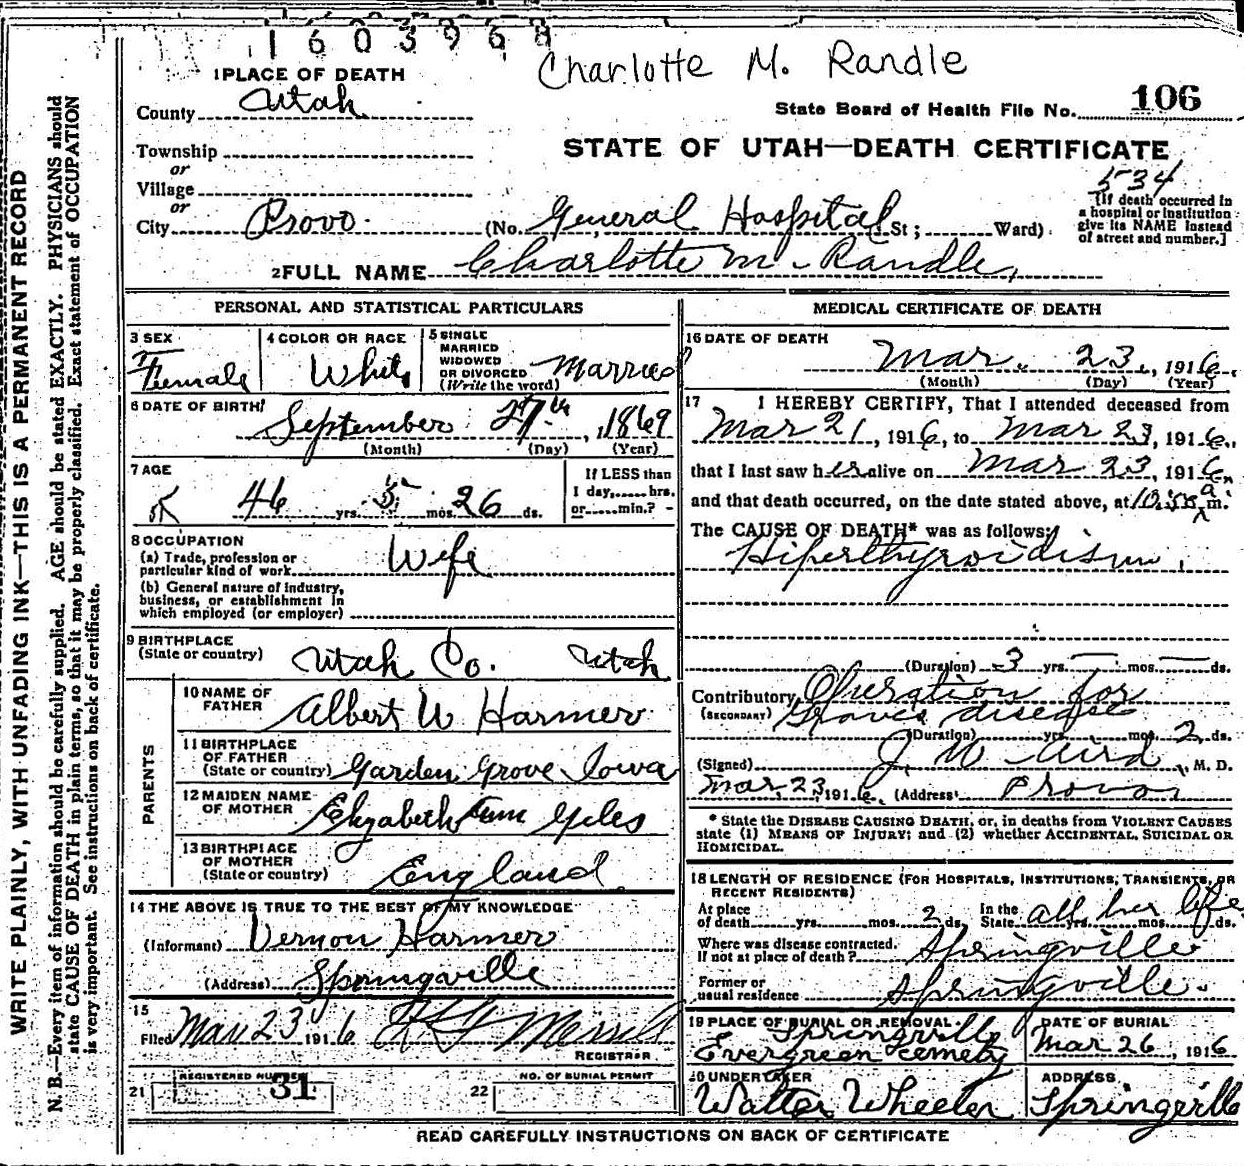 1603968
Charlotte M. Randle
1 PLACE OF DEATH
County Utah
State Board of Health File No. 106
Township
or
Village
or
City Provo
STATE OF UTAH—DEATH CERTIFICATE
534
(No. General Hospital St; Ward)
[If death occurred in
a hospital or institution
give its NAME instead
of street and number.]
2 FULL NAME Charlotte M. Randle
PERSONAL AND STATISTICAL PARTICULARS
3 SEX
Female
4 COLOR OR RACE
White
5 SINGLE
MARRIED
WIDOWED
OR DIVORCED
(Write the word)
Married
6 DATE OF BIRTH
September 27th, 1869
(Month) (Day) (Year)
7 AGE
46 yrs. 5 mos. 26 ds.
If LESS than
1 day, hrs.
or min.?
8 OCCUPATION
(a) Trade, profession or
particular kind of work Wife
(b) General nature of industry,
business, or establishment in
which employed (or employer)
9 BIRTHPLACE
(State or country) Utah Co. Utah
PARENTS
10 NAME OF
FATHER Albert W Harmer
11 BIRTHPLACE
OF FATHER
(State or country) Garden Grove Iowa
12 MAIDEN NAME
OF MOTHER Elizabeth Giles
13 BIRTHPLACE
OF MOTHER
(State or country) England
14 THE ABOVE IS TRUE TO THE BEST OF MY KNOWLEDGE
(Informant) Vernon Harmer
(Address) Springville
15
Filed Mar 23 1916 Merrill
REGISTRAR
21 REGISTERED NUMBER 31
22 NO. OF BURIAL PERMIT
MEDICAL CERTIFICATE OF DEATH
16 DATE OF DEATH
Mar. 23, 1916
(Month) (Day) (Year)
17 I HEREBY CERTIFY, That I attended deceased from
Mar 21, 1916, to Mar 23, 1916,
that I last saw her alive on Mar 23, 1916,
and that death occurred, on the date stated above, at 10:55 a m.
The CAUSE OF DEATH* was as follows:
Hiperthyroidism.
(Duration) 3 yrs. — mos. — ds.
Contributory Operation for
(SECONDARY) Graves disease
(Duration) yrs. mos. 2 ds.
(Signed) J. W Aird, M. D.
Mar, 23, 1916 (Address) Provo
* State the DISEASE CAUSING DEATH, or, in deaths from VIOLENT CAUSES
state (1) MEANS OF INJURY; and (2) whether ACCIDENTAL, SUICIDAL OR
HOMICIDAL.
18 LENGTH OF RESIDENCE (FOR HOSPITALS, INSTITUTIONS, TRANSIENTS, OR
RECENT RESIDENTS)
At place
of death yrs. mos. 2 ds. In the
State all her life yrs. mos. ds.
Where was disease contracted.
If not at place of death? Springville
Former or
usual residence Springville.
19 PLACE OF BURIAL OR REMOVAL
Springville
Evergreen Cemety
DATE OF BURIAL
Mar 26, 1916
20 UNDERTAKER
Walter Wheeler
ADDRESS
Springville
READ CAREFULLY INSTRUCTIONS ON BACK OF CERTIFICATE
WRITE PLAINLY, WITH UNFADING INK—THIS IS A PERMANENT RECORD
N. B.—Every item of information should be carefully supplied. AGE should be stated EXACTLY. PHYSICIANS should
state CAUSE OF DEATH in plain terms, so that it may be properly classified. Exact statement of OCCUPATION
is very important. See instructions on back of certificate.